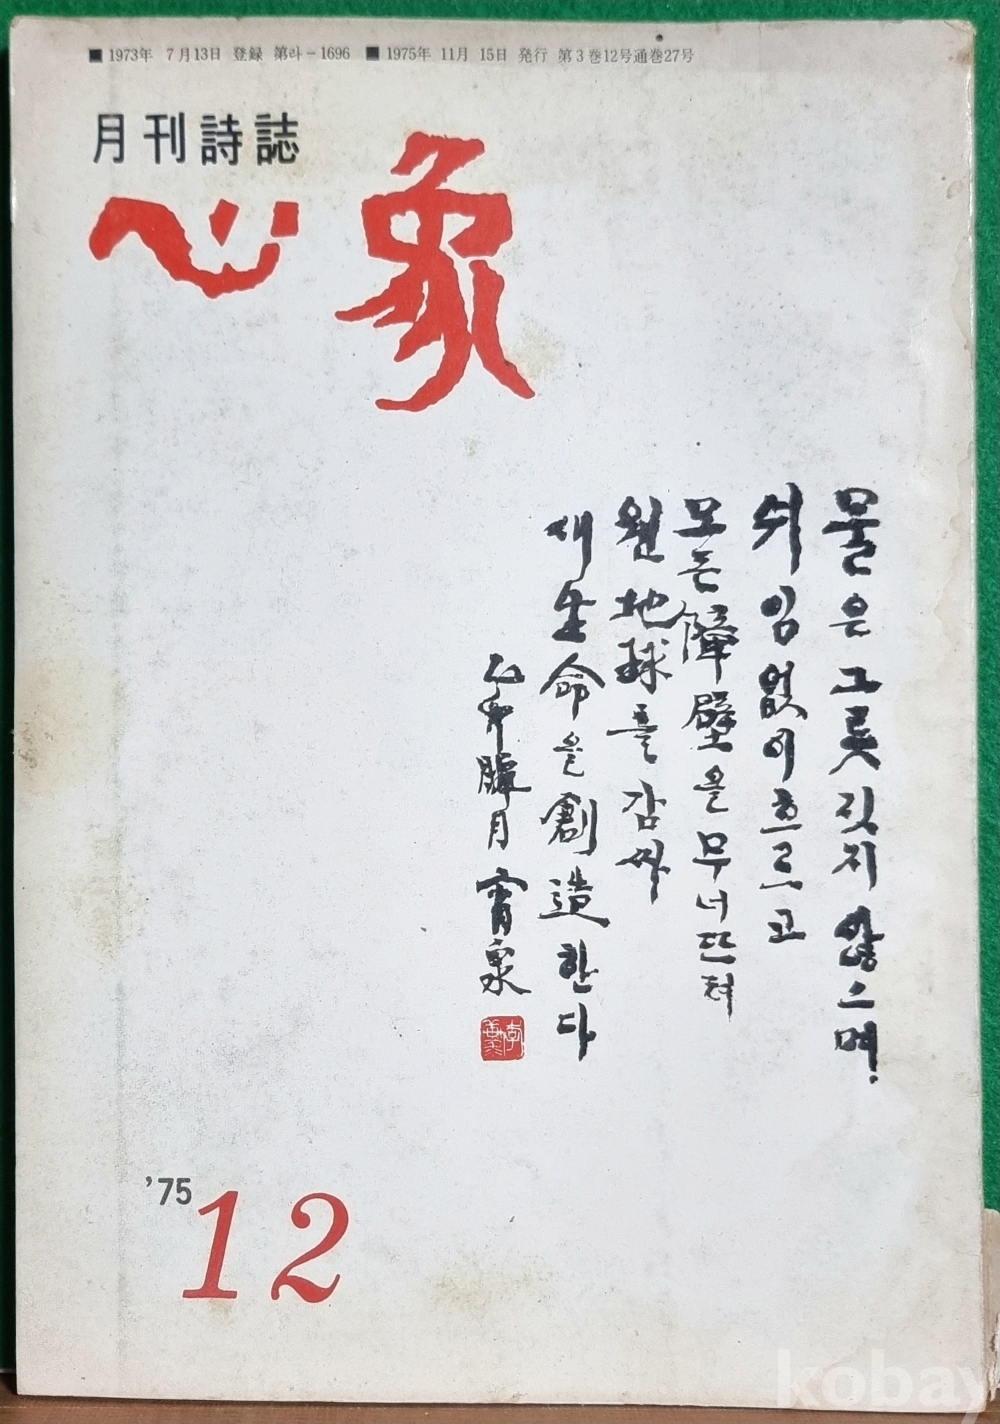 ■ 1973年 7月13日 登録 第라-1696 ■ 1975年 11月 15日 発行 第3巻12号通巻27号
月刊詩誌
心象
물은 그릇 짓지 않으며.
쉬임 없이 흐르고
모든 障壁을 무너뜨려
원 地球를 감싸
새 生命을 創造한다
乙卯 臘月 宵泉
'75
12
kobay